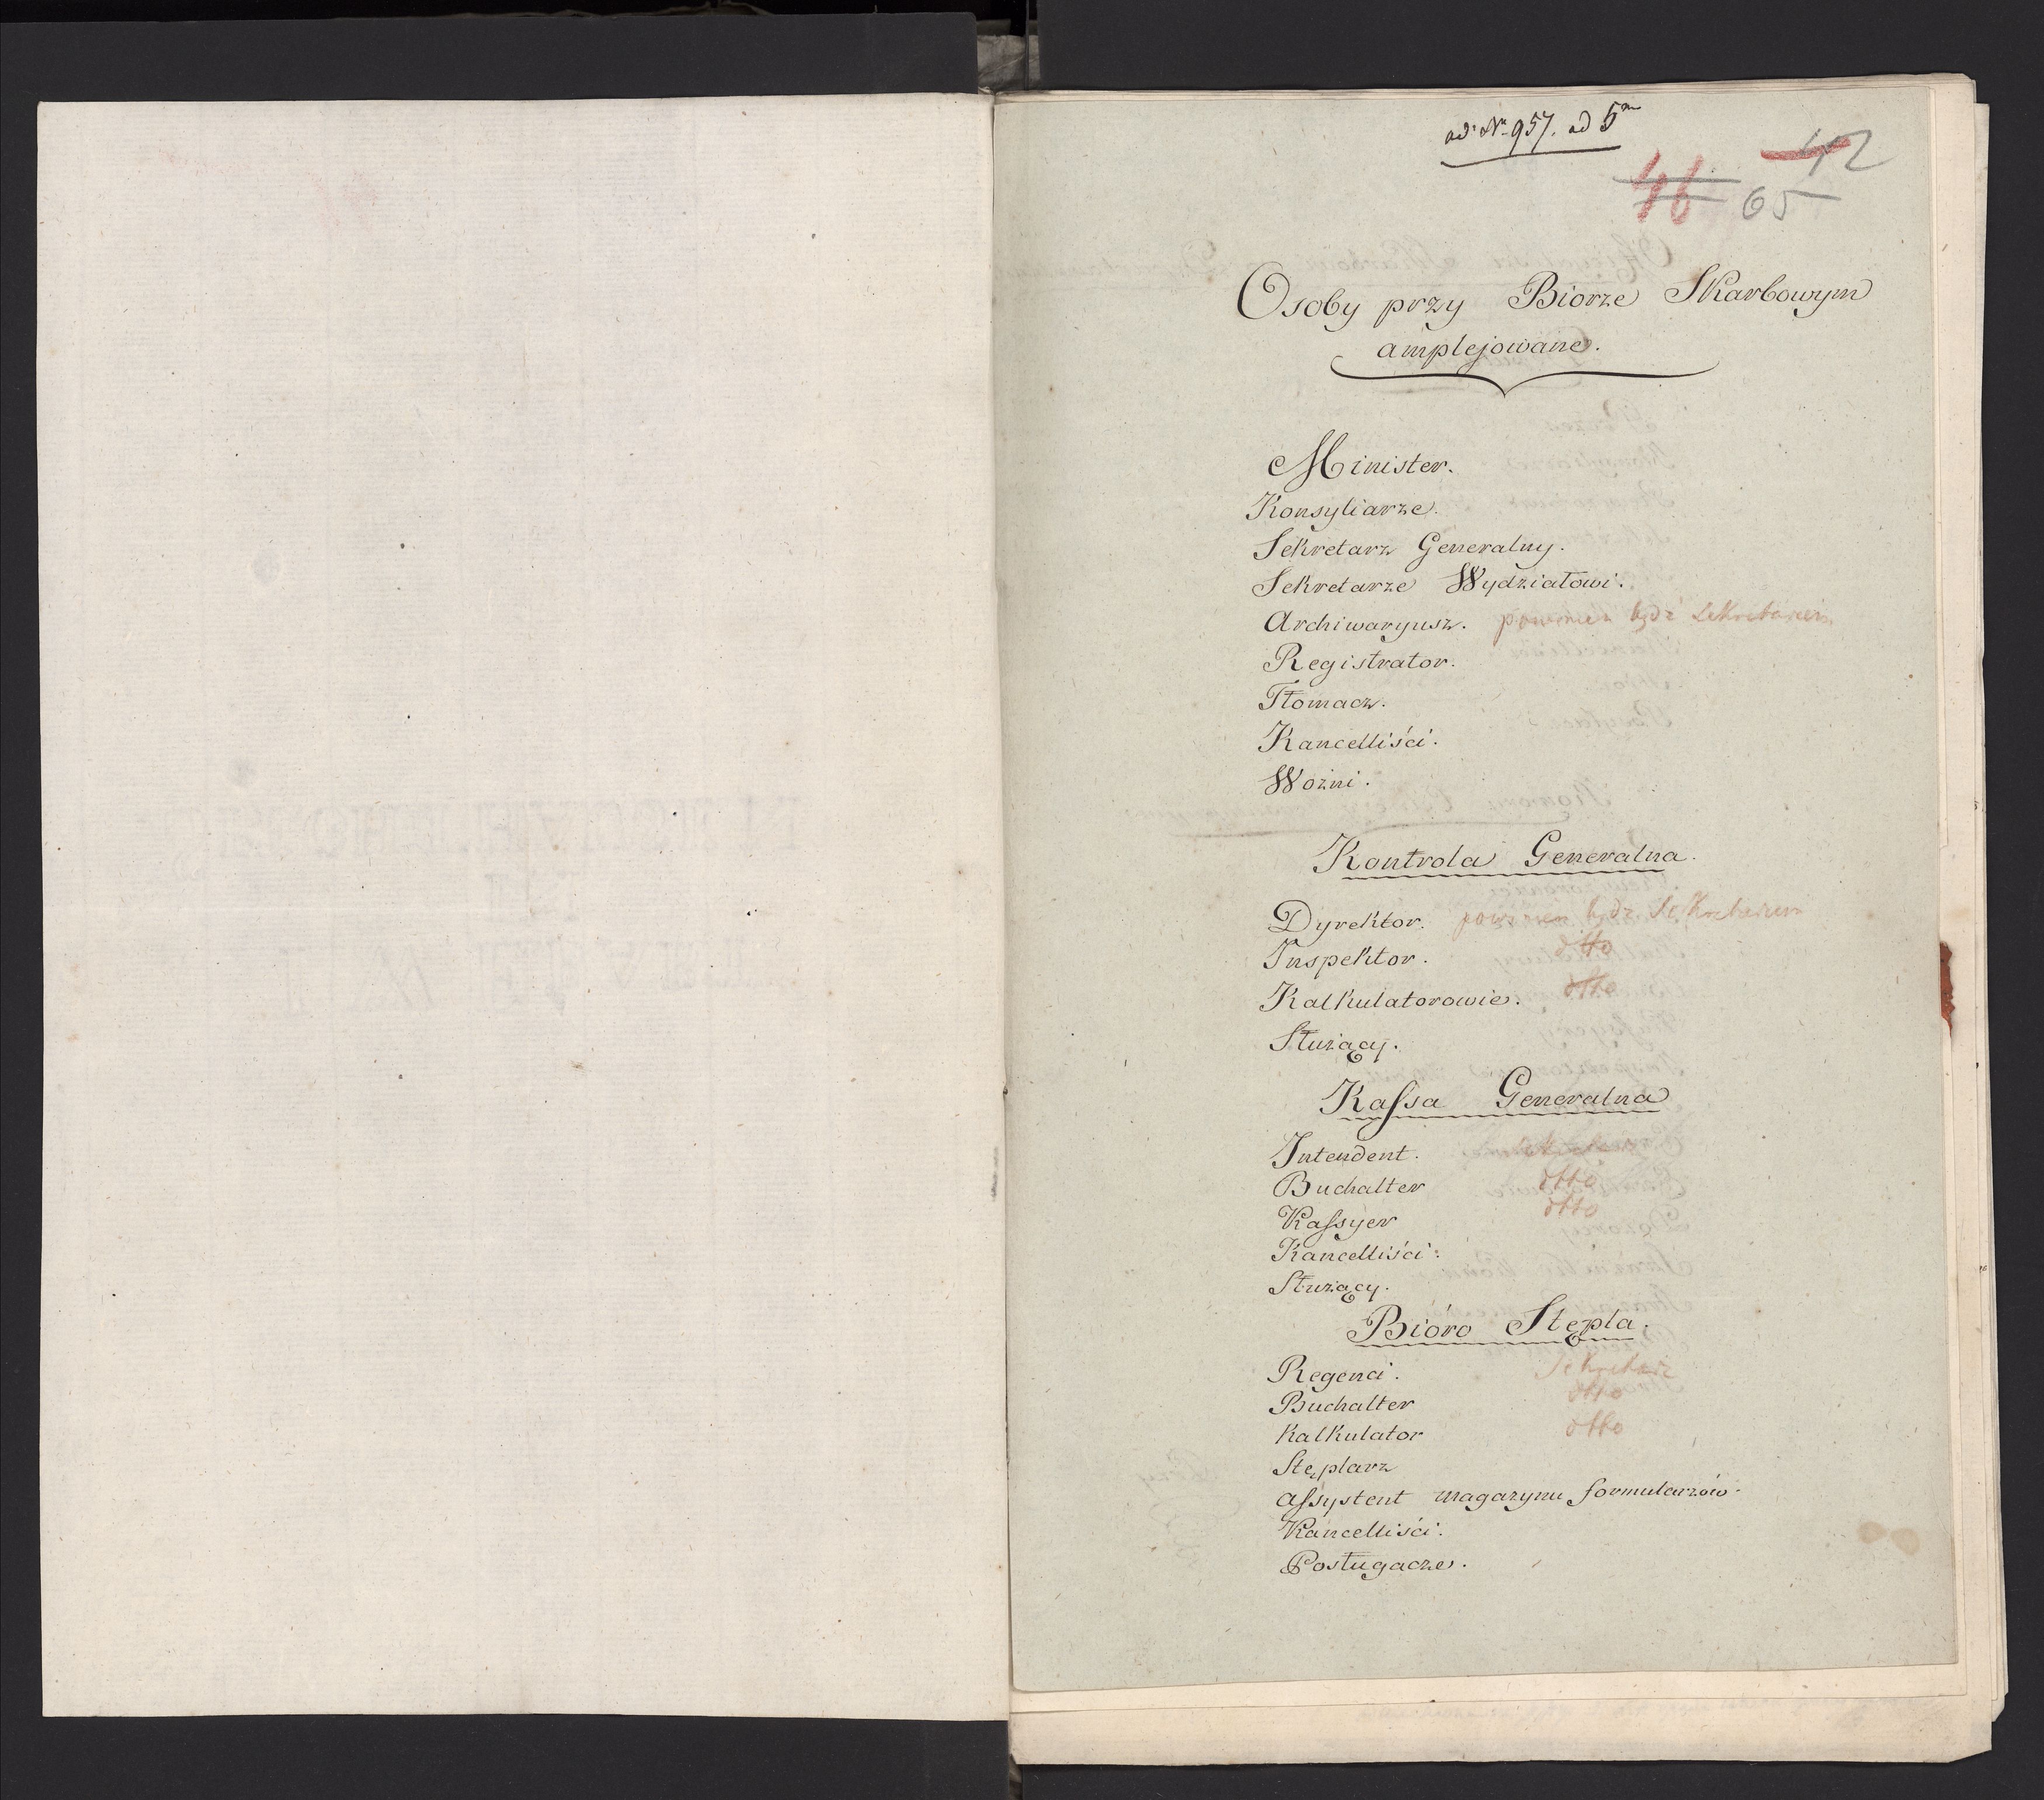 ad Nr. 957. ad 5m
42
46 65
Osoby przy Biorze Skarbowym
amplejowane.
Minister.
Konsyliarze.
Sekretarz Generalny.
Sekretarze Wydziałowi.
Archiwaryusz. powinien bydź Sekretarzem
Registrator.
Tłomacz.
Kancelliści.
Wozni.
Kontrola Generalna.
Dyrektor. powinien bydz Sekretarzem
Inspektor. dtto
Kalkulatorowie. dtto
Służący.
Kaſsa Generalna
Intendent.
Buchalter dtto
Kaſsyer dtto
Kancelliści.
Służący.
Bióro Stępla.
Regenci. Sekretarz
Buchalter dtto
Kalkulator dtto
Stęplarz
aſsystent magazynu formularzów.
Kancelliści.
Posługacze.